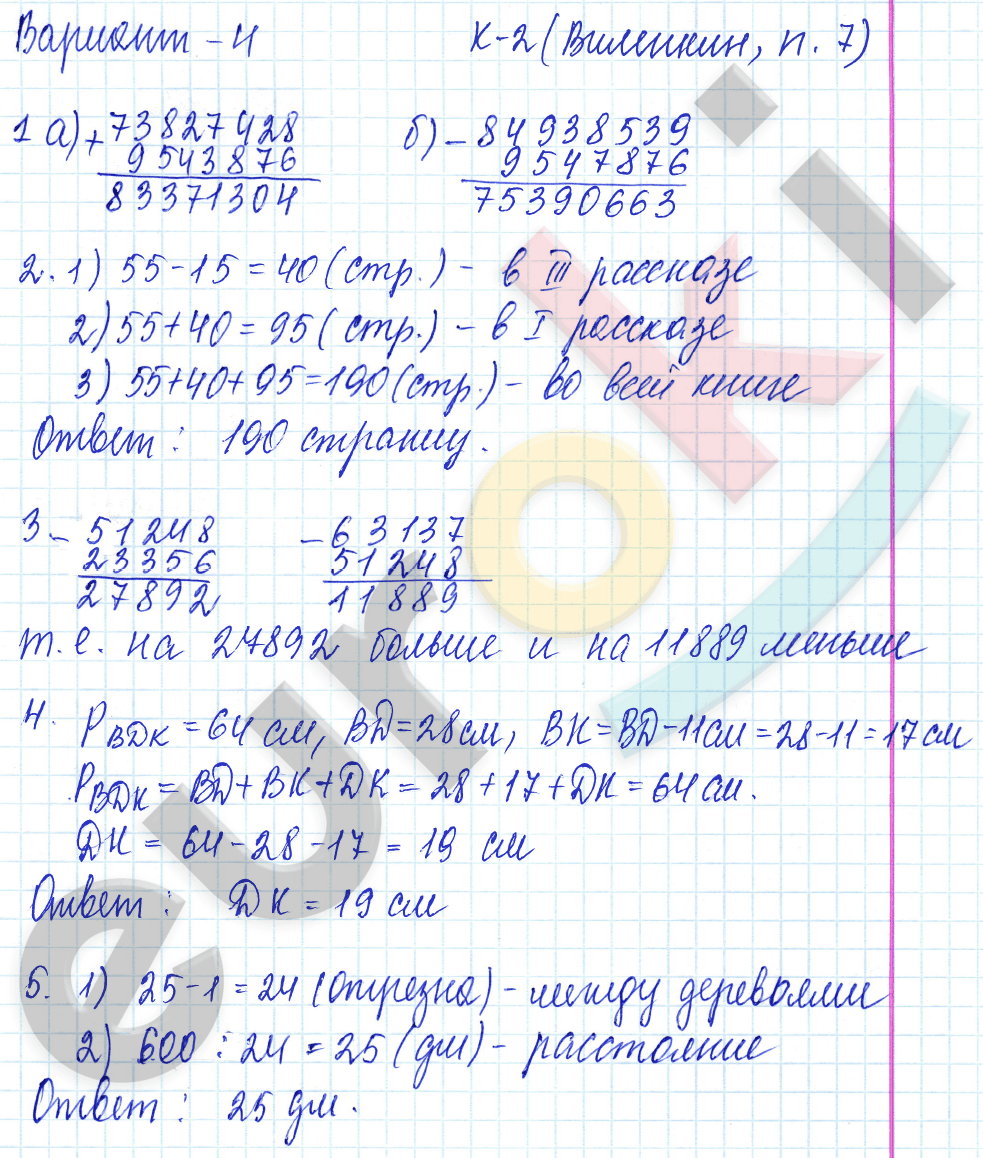 Вариант - 4 К-2 (Виленкин, п. 7)
1 а) + 73827428 б) - 84938539
9543876 9547876
83371304 75390663
2. 1) 55-15=40 (стр.) - в III рассказе
2) 55+40=95 (стр.) - в I рассказе
3) 55+40+95=190 (стр.) - во всей книге
Ответ: 190 страниц.
3. - 51248 - 63137
23356 51248
27892 11889
т.е. на 27892 больше и на 11889 меньше
4. РВДК = 64 см, ВД=28см, ВК=ВД-11см=28-11=17см
РВДК = ВД+ВК+ДК = 28+17+ДК=64см.
ДК = 64-28-17 = 19 см
Ответ: ДК = 19 см
5. 1) 25-1=24 (отрезка) - между деревьями
2) 600:24=25 (дм) - расстояние
Ответ: 25 дм.
euroki